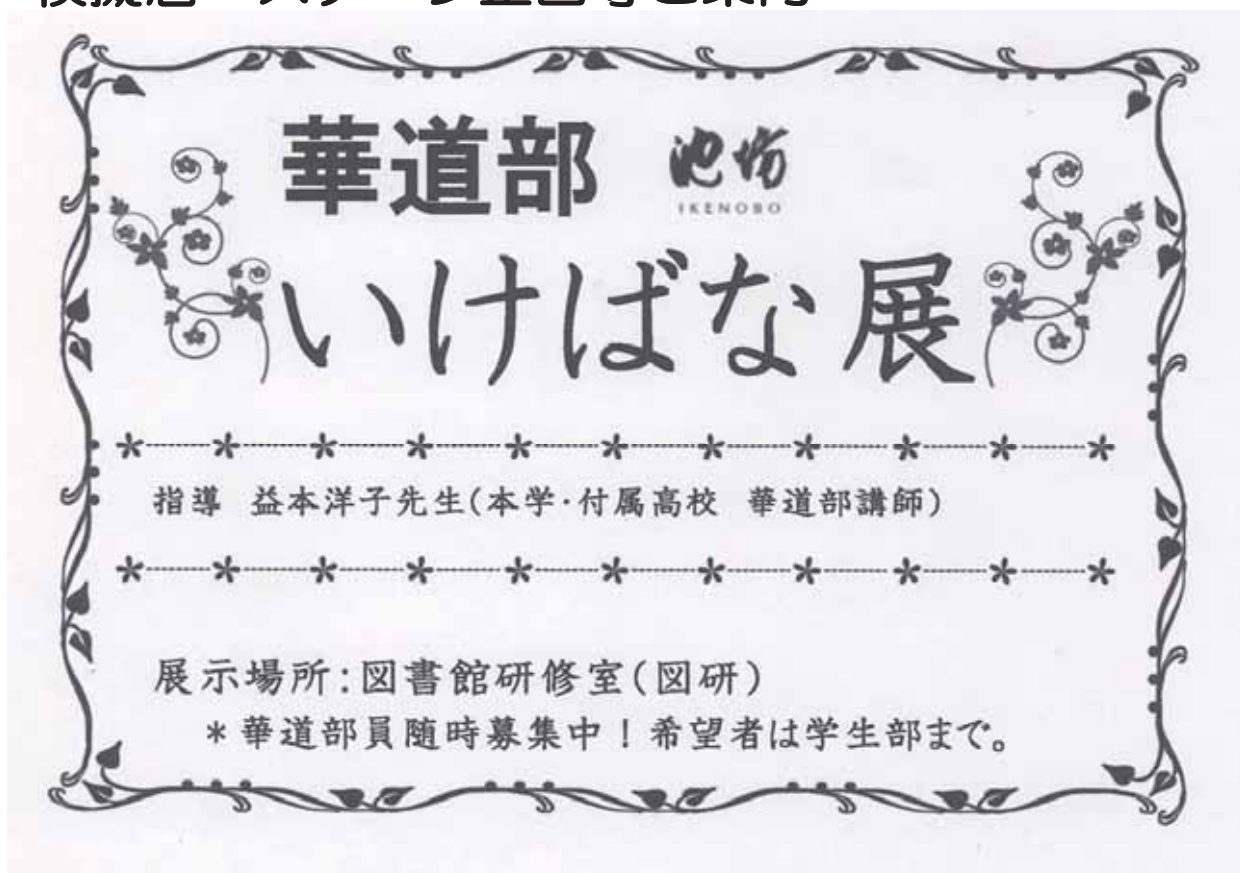 模擬店・ステージ企画等ご案内
華道部 池坊
IKENOBO
いけばな展
指導 益本洋子先生(本学・付属高校 華道部講師)
展示場所:図書館研修室(図研)
*華道部員随時募集中!希望者は学生部まで。